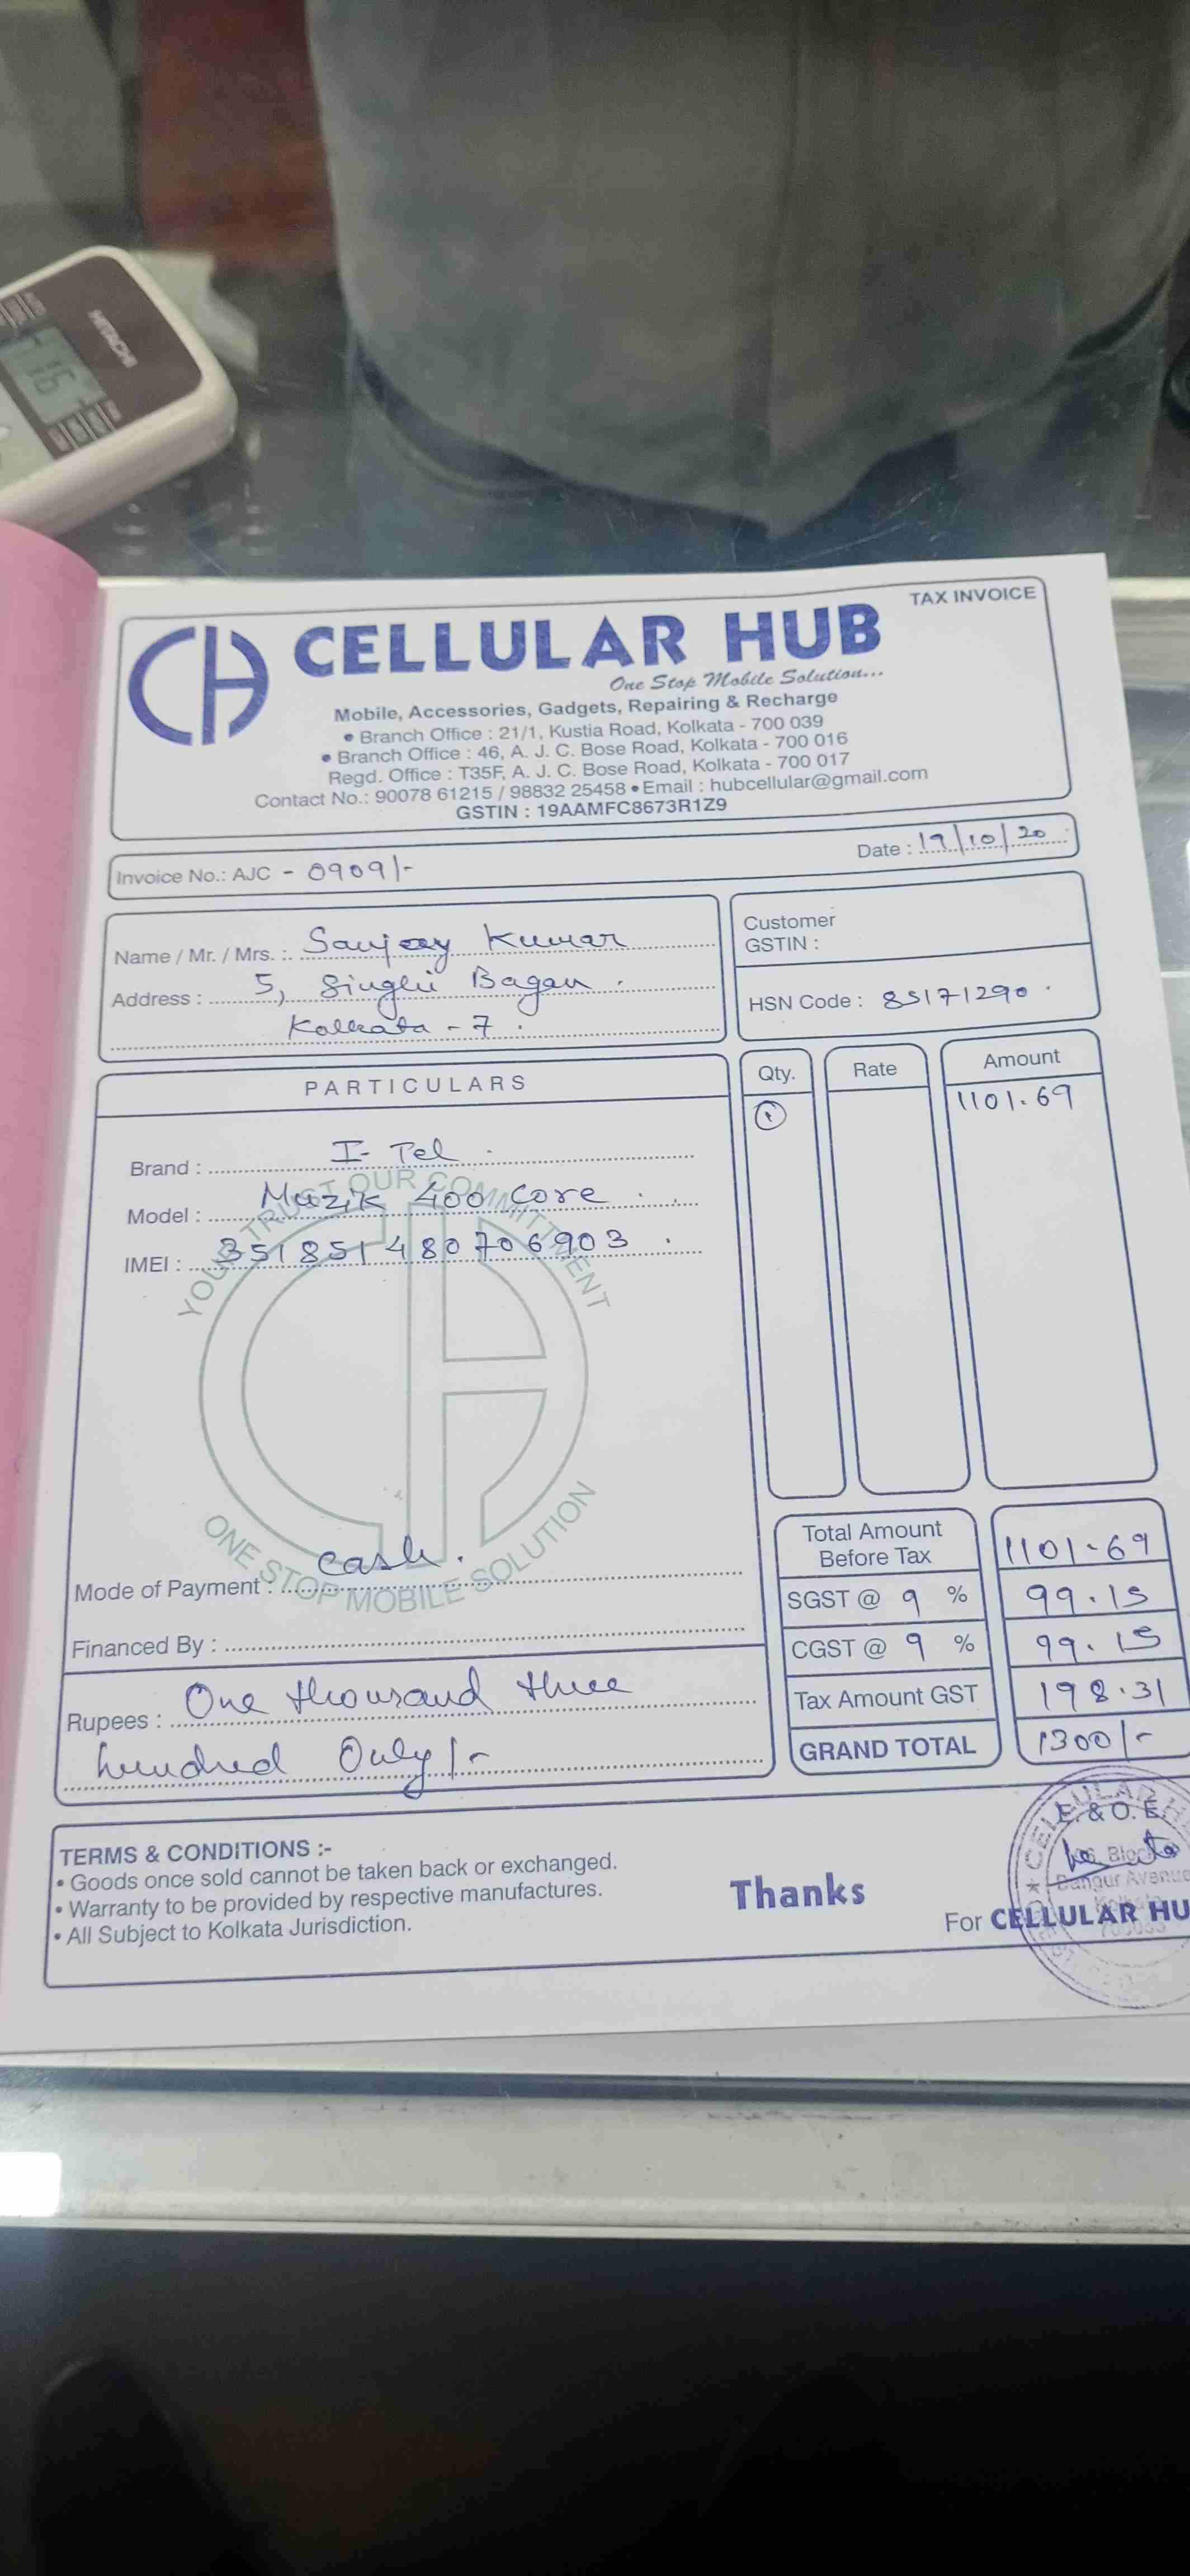 HITACHI
TAX INVOICE
CH CELLULAR HUB
One Stop Mobile Solution...
Mobile, Accessories, Gadgets, Repairing & Recharge
• Branch Office : 21/1, Kustia Road, Kolkata - 700 039
• Branch Office : 46, A. J. C. Bose Road, Kolkata - 700 016
Regd. Office : T35F, A. J. C. Bose Road, Kolkata - 700 017
Contact No.: 90078 61215 / 98832 25458 • Email : hubcellular@gmail.com
GSTIN : 19AAMFC8673R1Z9
Invoice No.: AJC - 0909/- Date : 19/10/20
Name / Mr. / Mrs. : Sanjay Kumar
Address : 5, Singhi Bagan
Kolkata - 7.
Customer
GSTIN :
HSN Code : 85171290.
PARTICULARS Qty. Rate Amount
1 1101.69
Brand : I-Tel
Model : Muzik 400 Core
IMEI : 351851480706903
YOUR TRUST OUR COMMITTMENT
ONE STOP MOBILE SOLUTION
Mode of Payment : Cash.
Financed By :
Rupees : One thousand three
hundred Only/-
Total Amount
Before Tax 1101-69
SGST @ 9 % 99.15
CGST @ 9 % 99.15
Tax Amount GST 198.31
GRAND TOTAL 1300/-
TERMS & CONDITIONS :-
• Goods once sold cannot be taken back or exchanged.
• Warranty to be provided by respective manufactures.
• All Subject to Kolkata Jurisdiction.
Thanks
E. & O. E.
CELLULAR
Block
Bangur Avenue
Kolkata
For CELLULAR HU